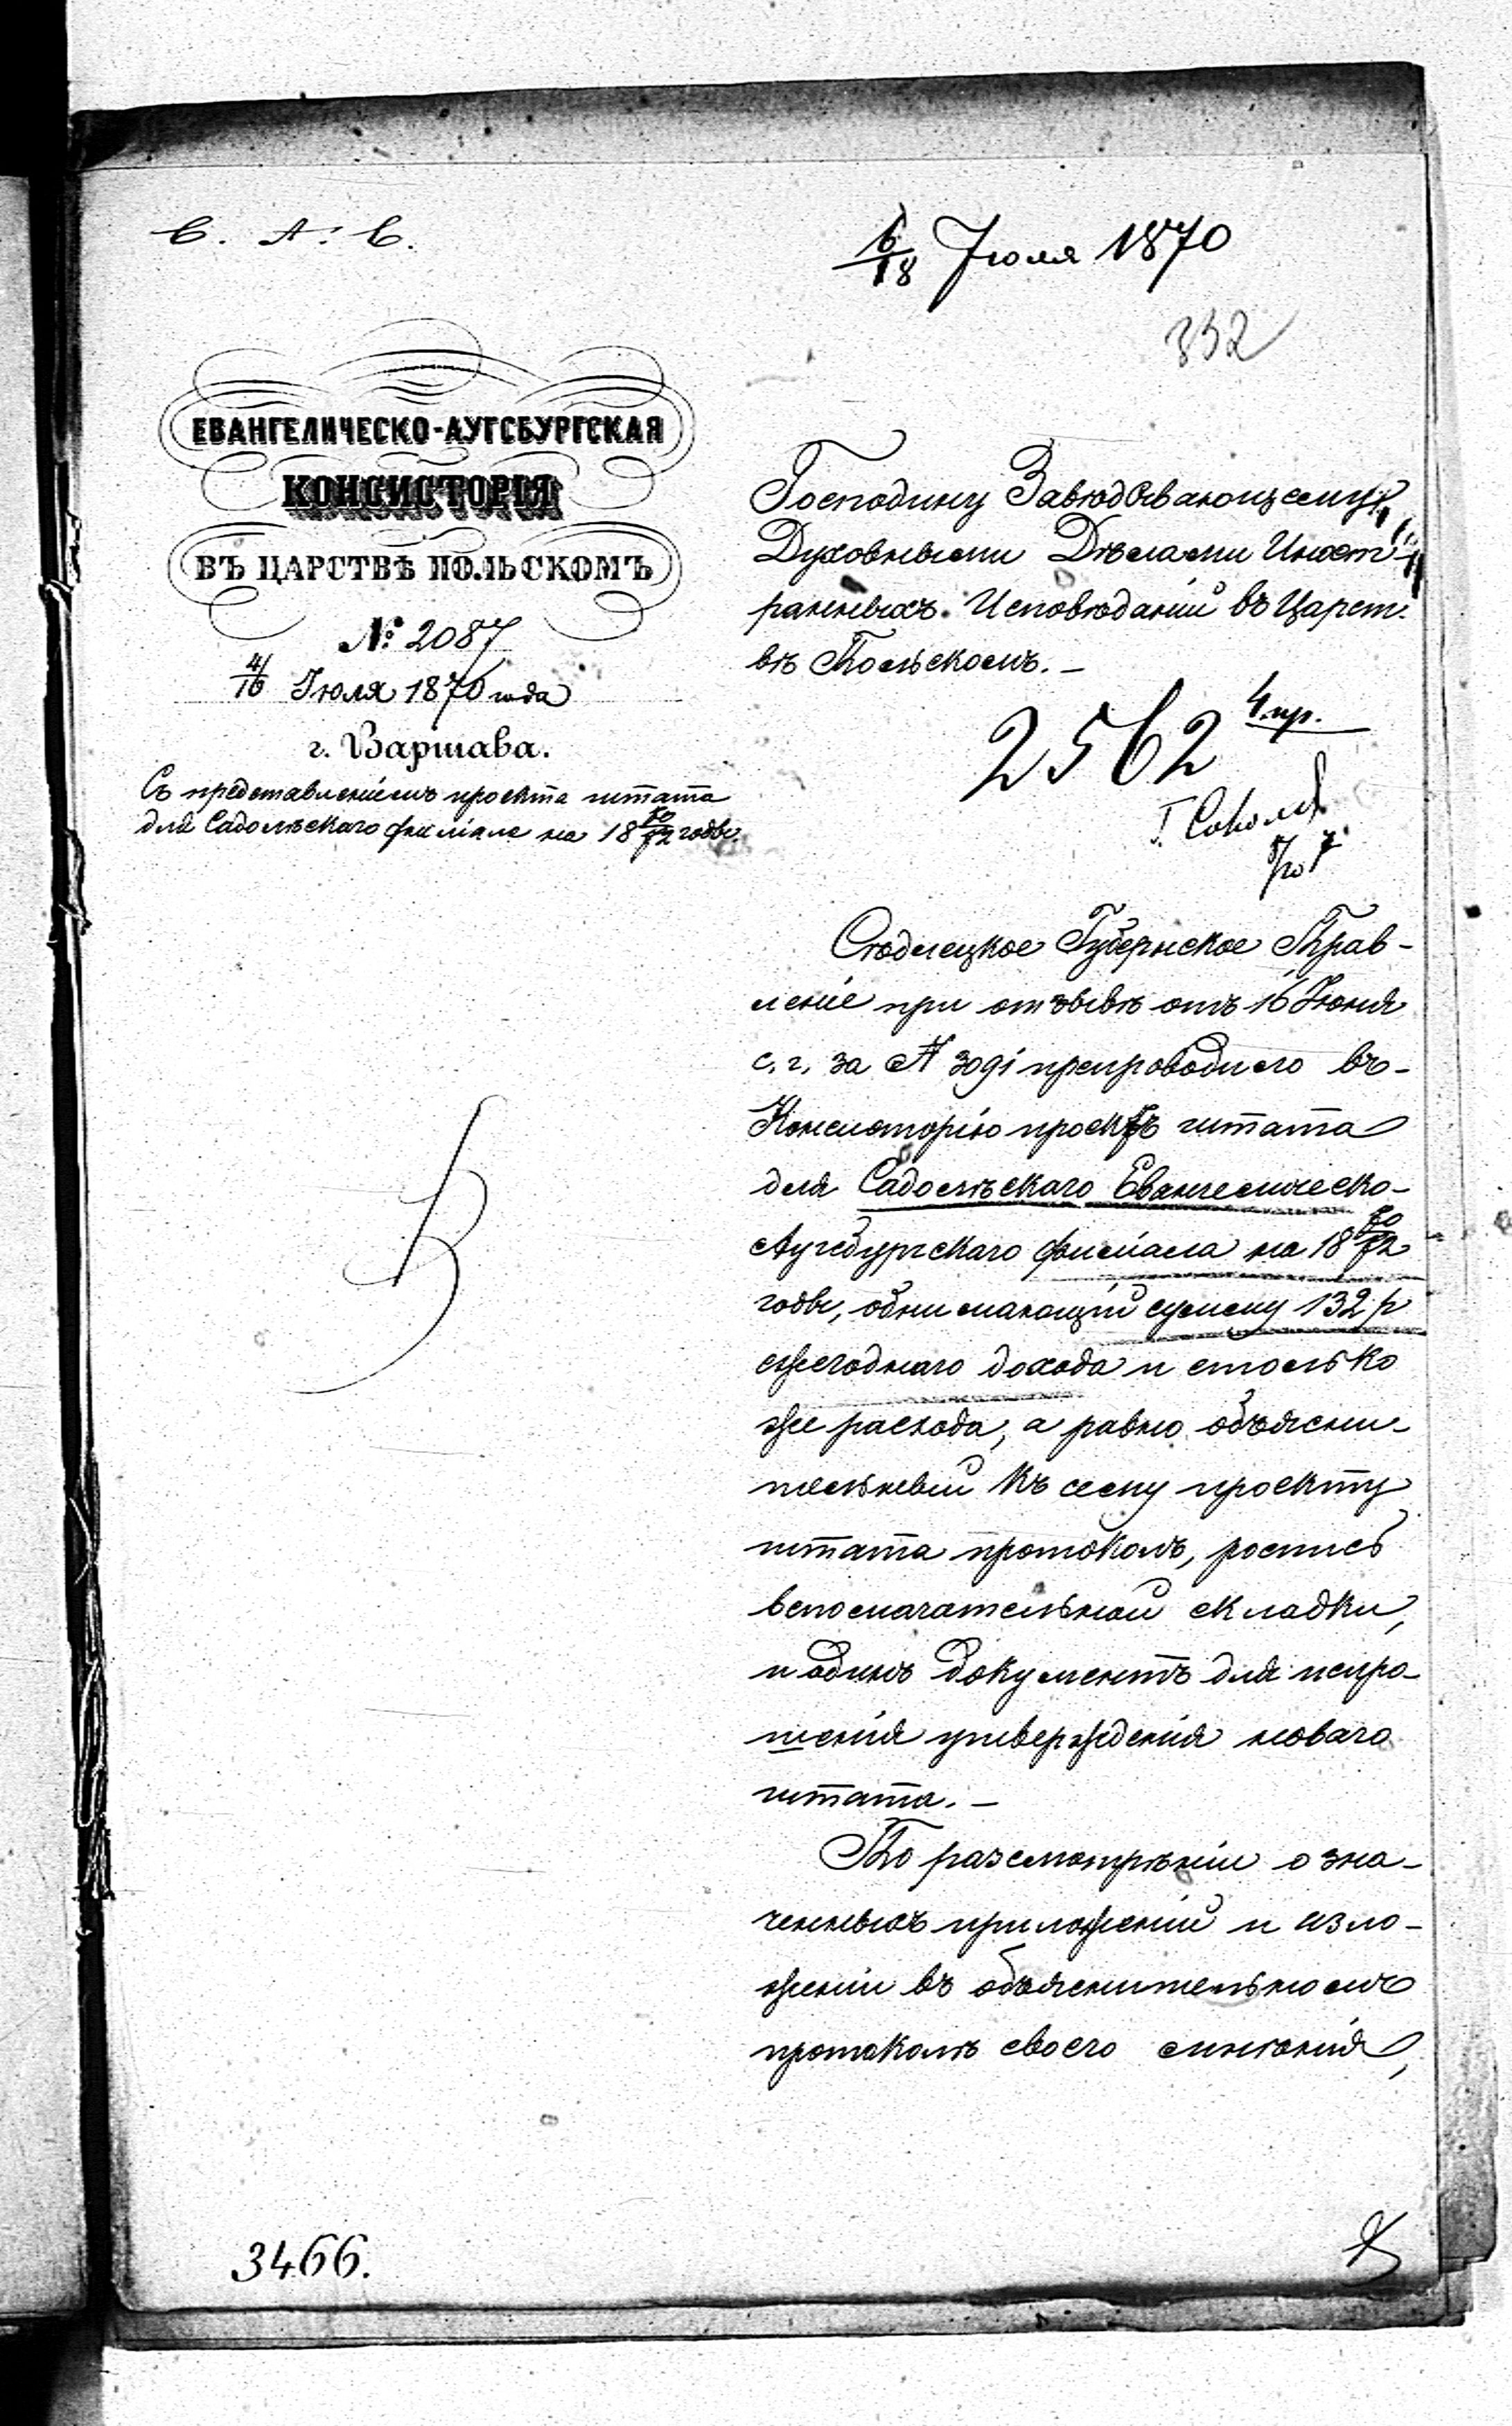 С. А. С.
6/18 Іюля 1870
332
ЕВАНГЕЛИЧЕСКО-АУГСБУРГСКАЯ
КОНСИСТОРІЯ
ВЪ ЦАРСТВѢ ПОЛЬСКОМЪ
№ 2087
4/16 Іюля 1870 года
г. Варшава.
Съ представленіемъ проэкта штата
для Садольскаго филіала на 18 70/72 годы.
Господину Завѣдывающему
Духовными Дѣлами Иност-
ранныхъ Исповѣданій въ Царст-
вѣ Польскомъ. —
2562 4 пр.
Г. Соколов
Сѣдлецкое Губернское Прав-
леніе при отзывѣ отъ 16 Іюня
с. г. за № 3091 препроводило въ
Консисторію проэктъ штата
для Садольскаго Евангелическо-
Аугсбургскаго филіала на 18 70/72
годы, обнимающій сумму 132 р
ежегоднаго дохода и столько
же расхода, а равно объясни-
тельный къ сему проэкту
штата протоколъ, роспись
вспомагательной складки,
и одинъ документъ для испро-
шенія утвержденія новаго
штата. —
По разсмотрѣніи озна-
ченныхъ приложеній и изло-
женіи въ объяснительномъ
протоколѣ своего мнѣнія,
3466.